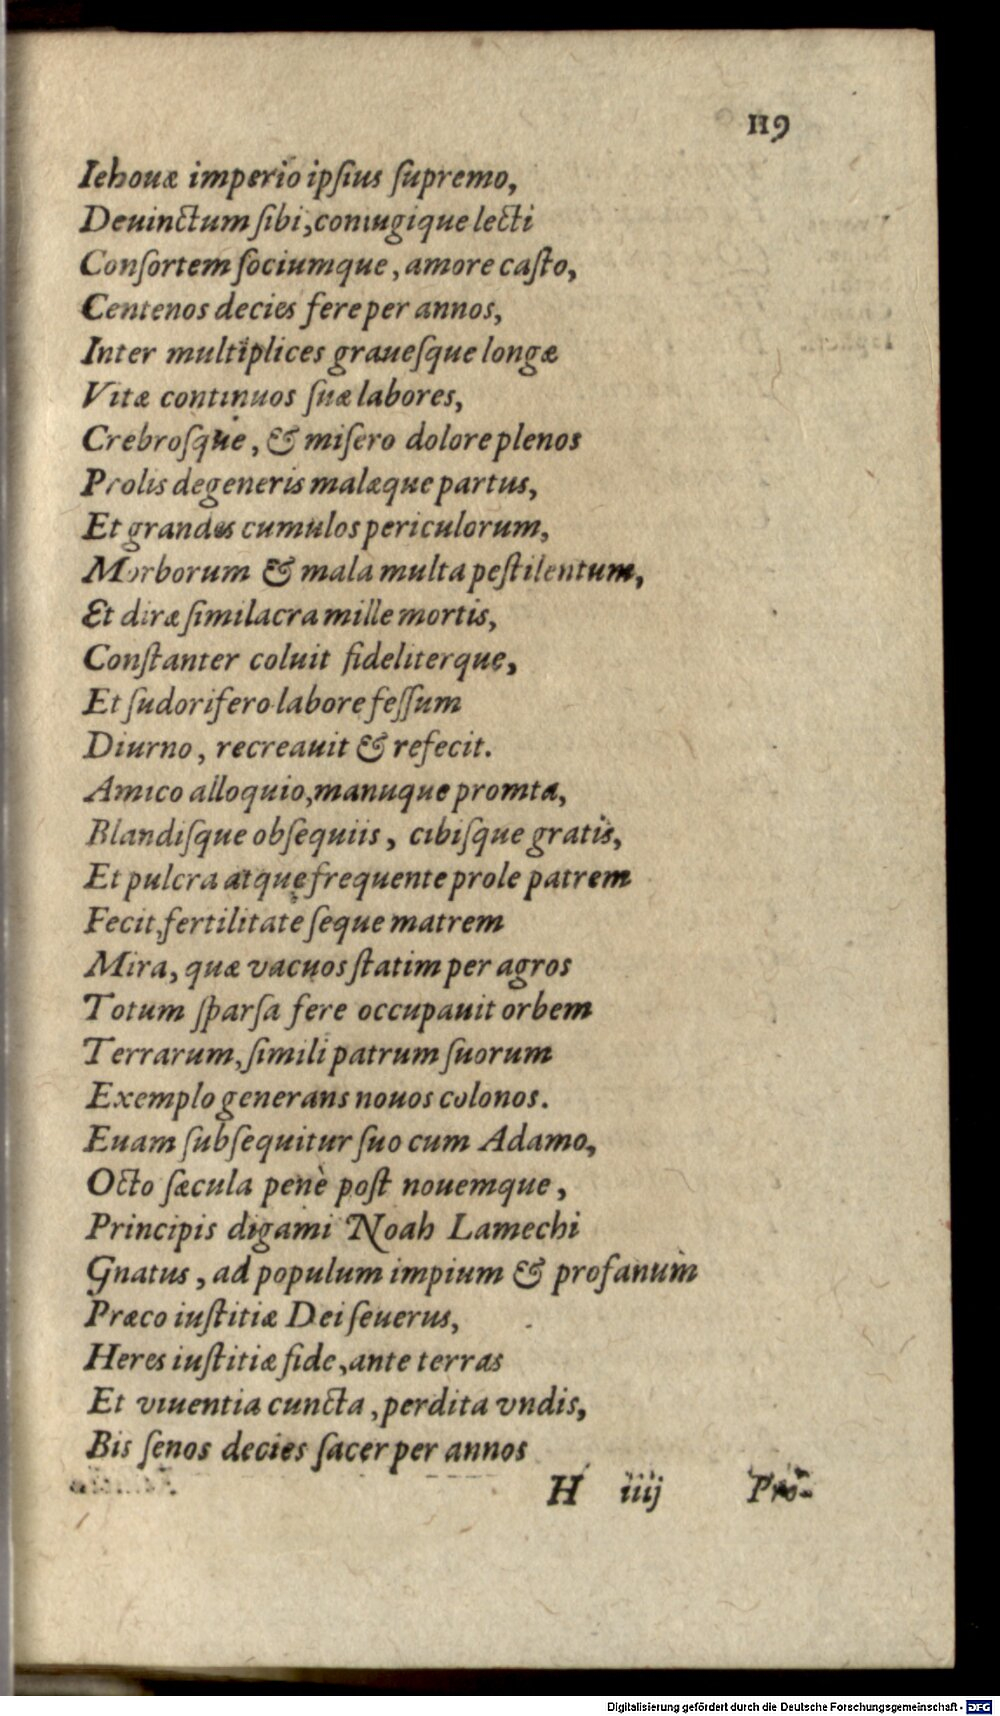 119
Iehouæ imperio ipſius ſupremo,
Deuinctum ſibi, coniugique lecti
Conſortem ſociumque, amore caſto,
Centenos decies fere per annos,
Inter multiplices graueſque longæ
Vitæ continuos ſuæ labores,
Crebroſque, & miſero dolore plenos
Prolis degeneris malæque partus,
Et grandes cumulos periculorum,
Morborum & mala multa peſtilentum,
Et diræ ſimilacra mille mortis,
Conſtanter coluit fideliterque,
Et ſudorifero labore feſſum
Diurno, recreauit & refecit.
Amico alloquio, manuque promta,
Blandiſque obſequiis, cibiſque gratis,
Et pulcra atque frequente prole patrem
Fecit, fertilitate ſeque matrem
Mira, quæ vacuos ſtatim per agros
Totum ſparſa fere occupauit orbem
Terrarum, ſimili patrum ſuorum
Exemplo generans nouos colonos.
Euam ſubſequitur ſuo cum Adamo,
Octo ſæcula penè poſt nouemque,
Principis digami Noah Lamechi
Gnatus, ad populum impium & profanum
Præco iuſtitiæ Dei ſeuerus,
Heres iuſtitiæ fide, ante terras
Et viuentia cuncta, perdita vndis,
Bis ſenos decies ſacer per annos
H iiij Pro-
Digitalisierung gefördert durch die Deutsche Forschungsgemeinschaft - DFG